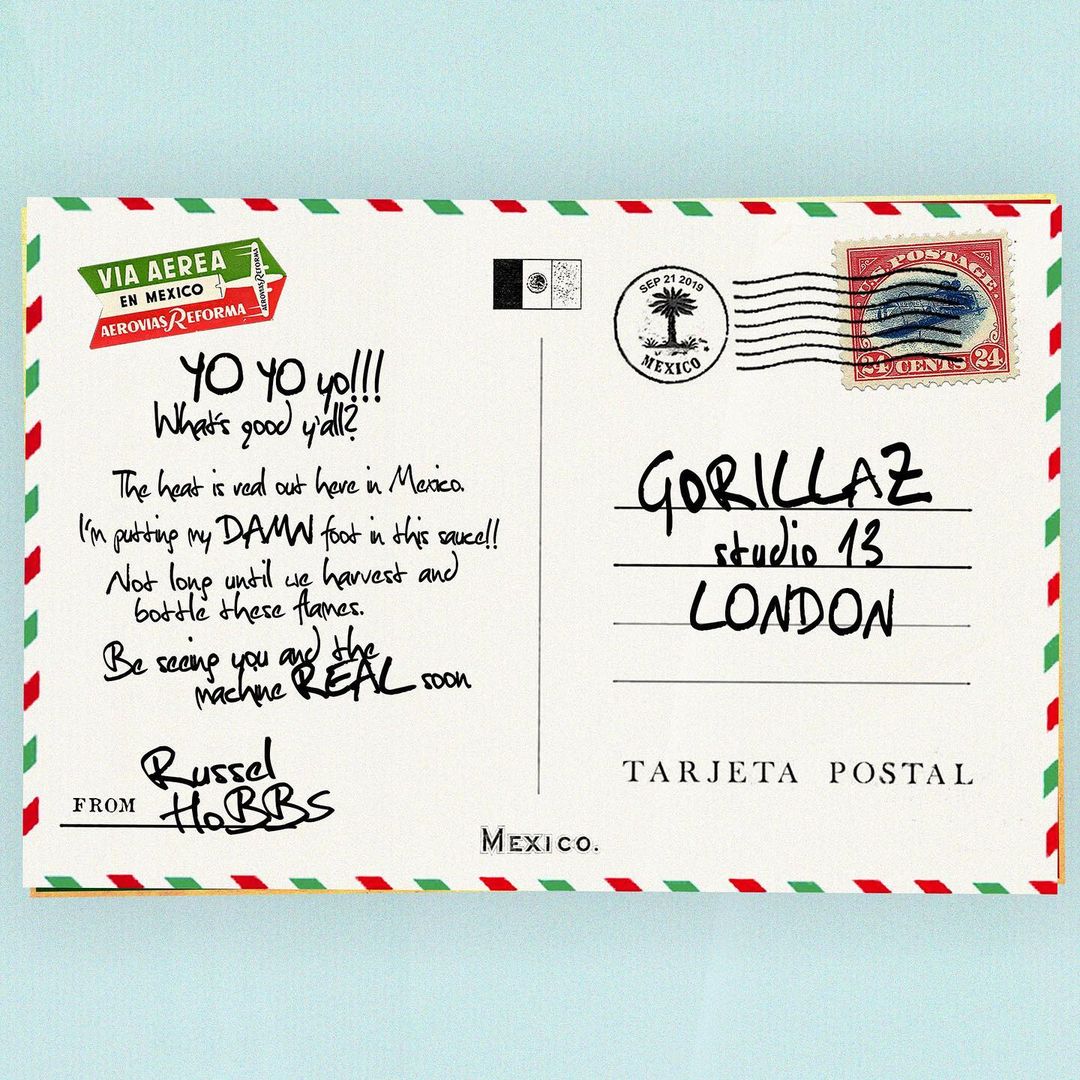 VIA AEREA
EN MEXICO
AEROVIAS REFORMA
AEROVIAS REFORMA
SEP 21 2019
MEXICO
U.S. POSTAGE
24 CENTS 24
YO YO yo!!!
What's good y'all?
The heat is real out here in Mexico.
I'm putting my DAMN foot in this sauce!!
Not long until we harvest and
bottle these flames.
Be seeing you and the
machine REAL soon
FROM Russel
HoBBS
GORILLAZ
studio 13
LONDON
TARJETA POSTAL
MEXICO.